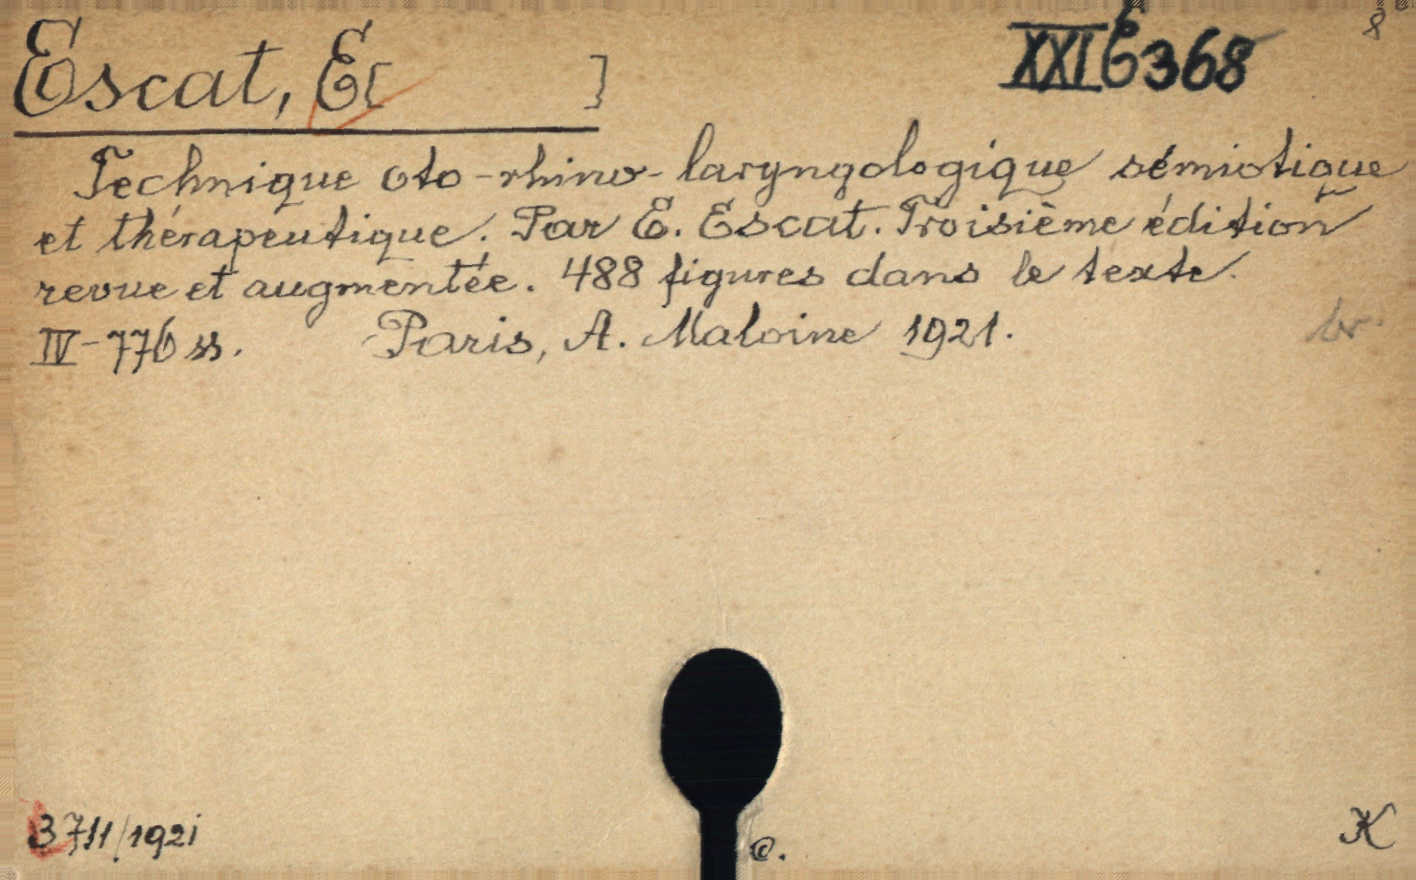 8°
Escat, E[ ]
XXI E 368
Technique oto-rhino-laryngologique sémiotique
et thérapeutique. Par E. Escat. Troisième édition
revue et augmentée. 488 figures dans le texte.
IV-776 ss. Paris, A. Maloine 1921.
br.
3711/1921
e.
K